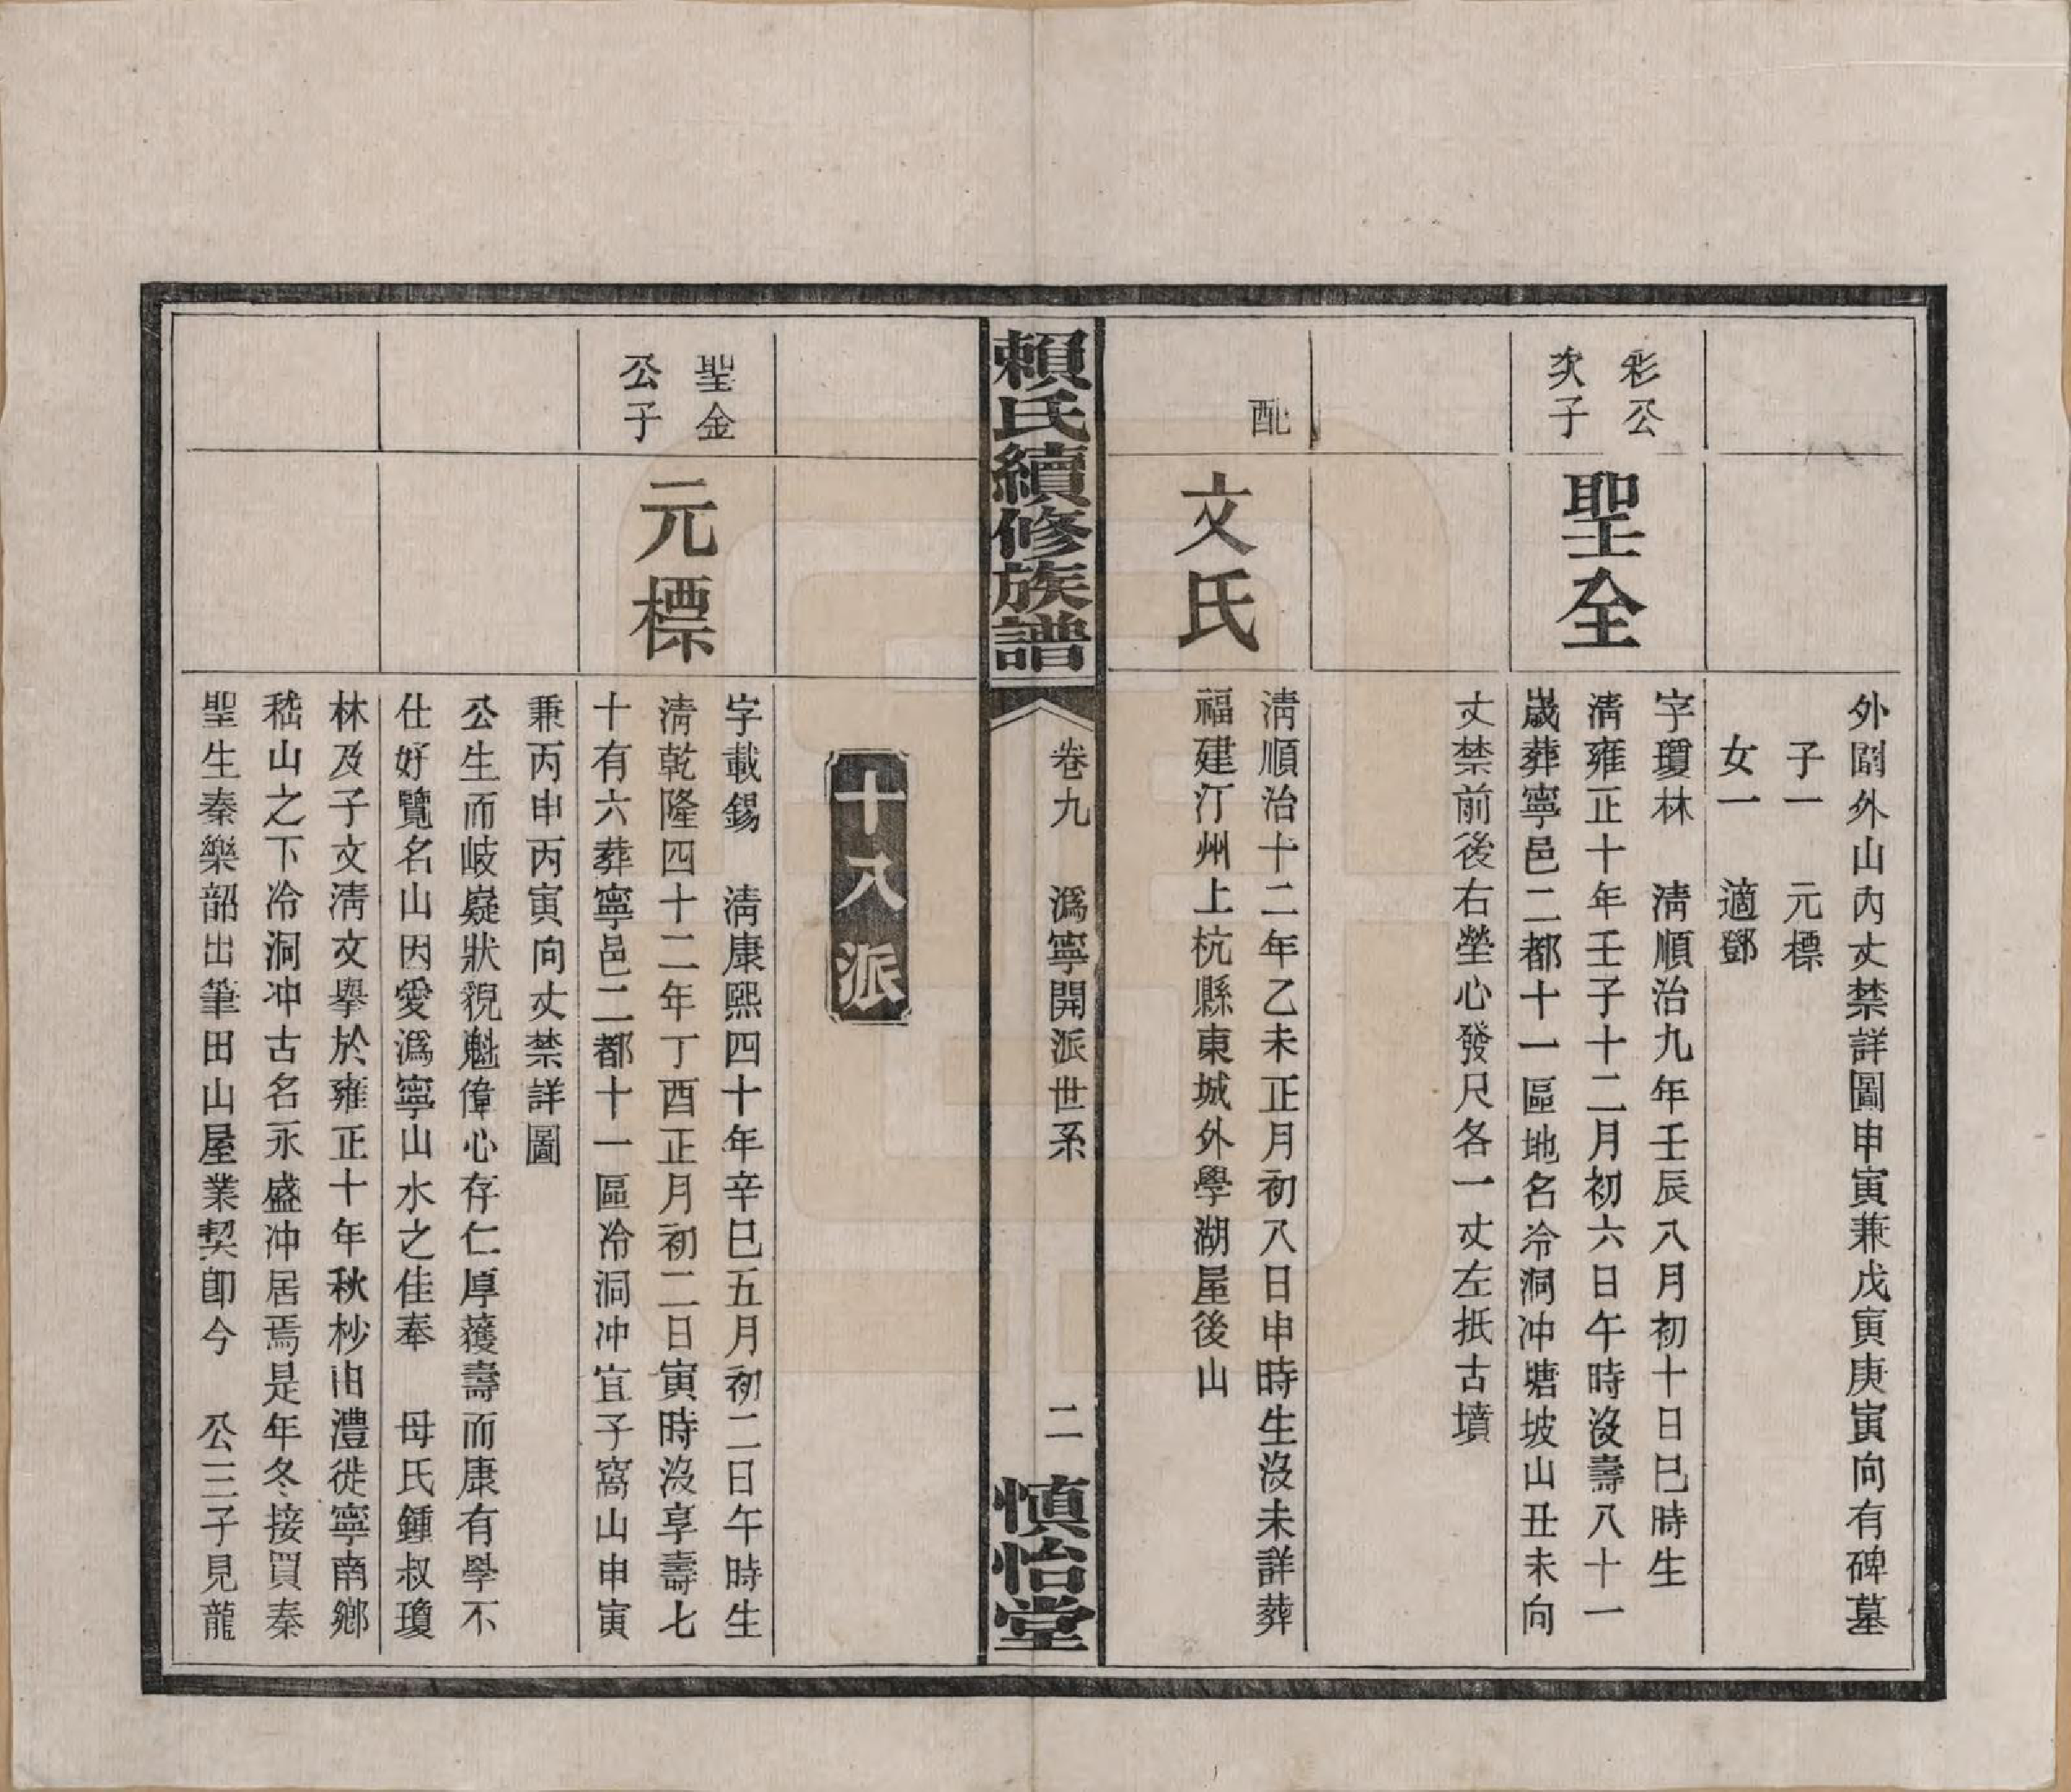 外闢外山內丈禁詳圖申寅兼戊寅庚寅向有碑墓
子一　元標
女一　適鄧
彩公
次子
聖全
字瓊林　淸順治九年壬辰八月初十日巳時生
淸雍正十年壬子十二月初六日午時沒壽八十一
歲葬寧邑二都十一區地名冷洞冲塘坡山丑未向
丈禁前後右塋心發尺各一丈左抵古墳
配
文氏
淸順治十二年乙未正月初八日申時生沒未詳葬
福建汀州上杭縣東城外學湖屋後山
賴氏續修族譜
卷九　潙寧開派世系
二
慎怡堂
十八派
聖金
公子
元標
字載錫　淸康熙四十年辛巳五月初二日午時生
淸乾隆四十二年丁酉正月初二日寅時沒享壽七
十有六葬寧邑二都十一區冷洞冲宜子窩山申寅
兼丙申丙寅向丈禁詳圖
公生而岐嶷狀貌魁偉心存仁厚獲壽而康有學不
仕好覽名山因愛潙寧山水之佳奉　母氏鍾叔瓊
林及子文淸文擧於雍正十年秋杪由澧徙寧南鄉
嵇山之下冷洞冲古名永盛冲居焉是年冬接買秦
聖生秦樂韶出筆田山屋業契卽今　公三子見龍